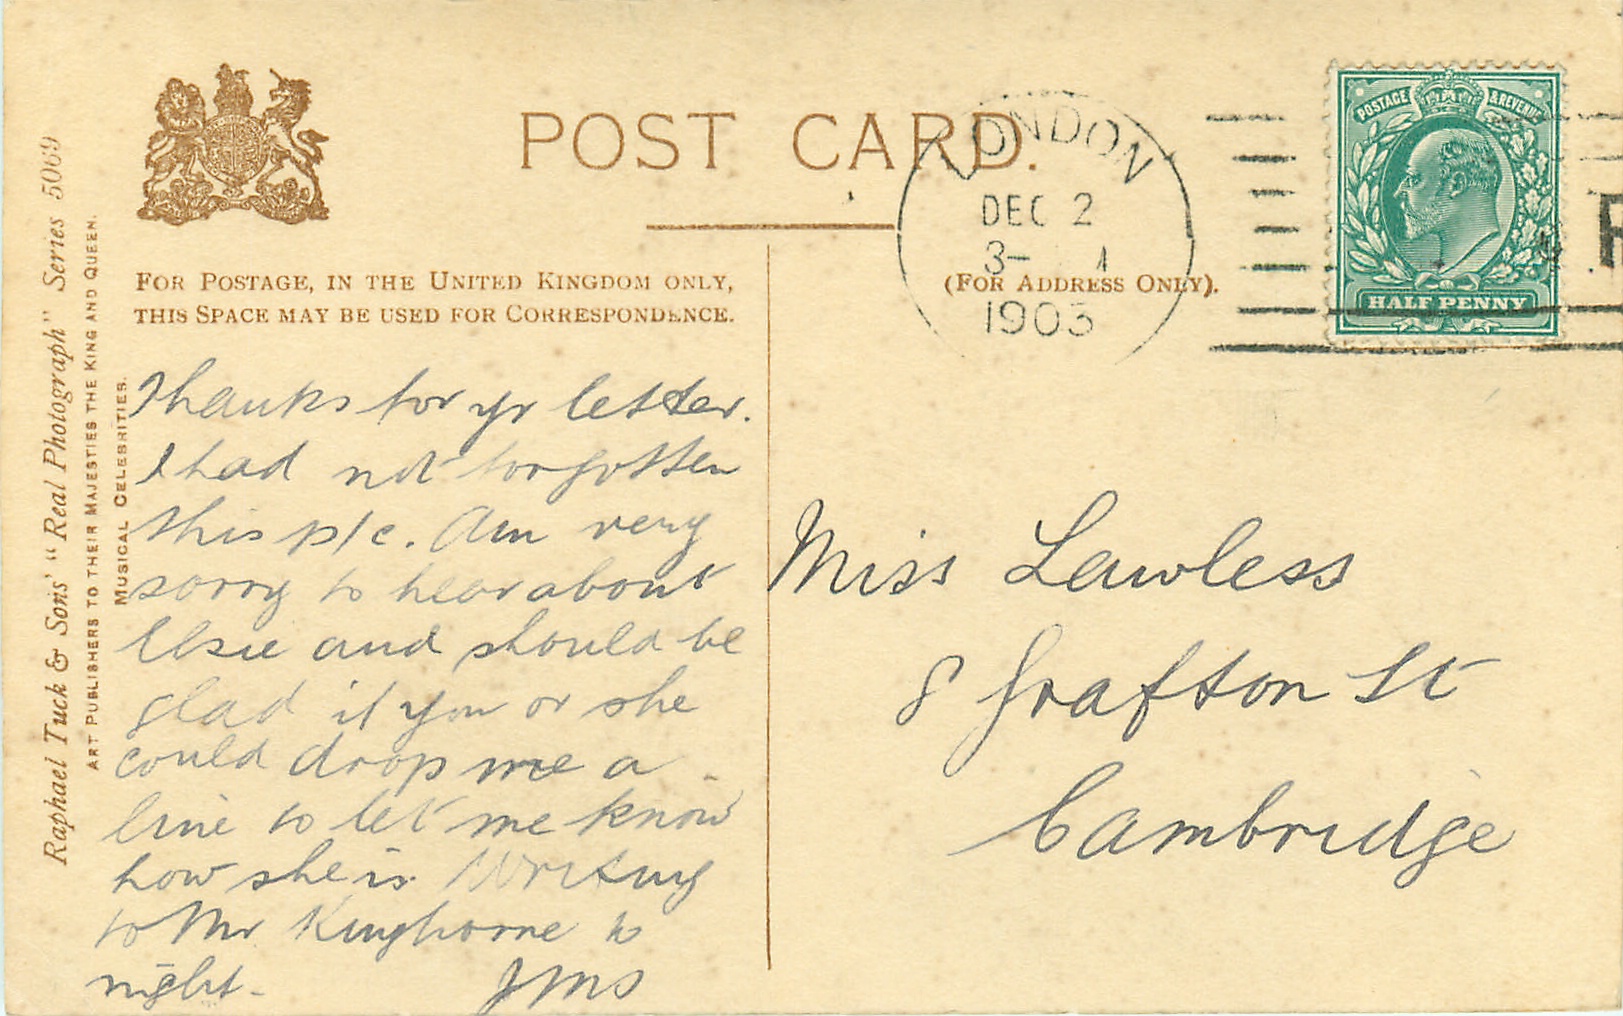 POST CARD.
LONDON
DEC 2
3- 1
1903
POSTAGE & REVENUE
HALF PENNY
FOR POSTAGE, IN THE UNITED KINGDOM ONLY,
THIS SPACE MAY BE USED FOR CORRESPONDENCE.
(FOR ADDRESS ONLY).
Raphael Tuck & Sons' "Real Photograph" Series 5069
ART PUBLISHERS TO THEIR MAJESTIES THE KING AND QUEEN.
MUSICAL CELEBRITIES.
Thanks for yr letter.
I had not forgotten
this p/c. Am very
sorry to hear about
Elsie and should be
glad if you or she
could drop me a
line to let me know
how she is. Writing
to Mr Kinghorne to
night.
JMS
Miss Lawless
8 Grafton St
Cambridge